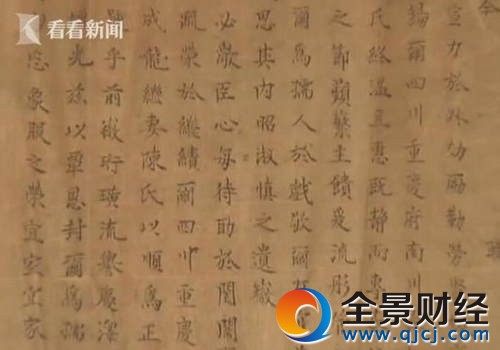 看看新闻
宣力於外効厥勤勞
爾四川重慶府南川
氏終溫且惠既靜而專
之節蘋蘩主饋爰流彤
爾爲孺人於戲敬爾
思其內昭淑慎之遺徽
必敬臣心每待助於閨闈
榮於繼績爾四川重慶
成龍繼妻陳氏以順爲正
乎前徽珩璜流譽
光茲以覃恩封爾爲孺
象服之榮宜室宜家
全景财经
www.qjcj.com